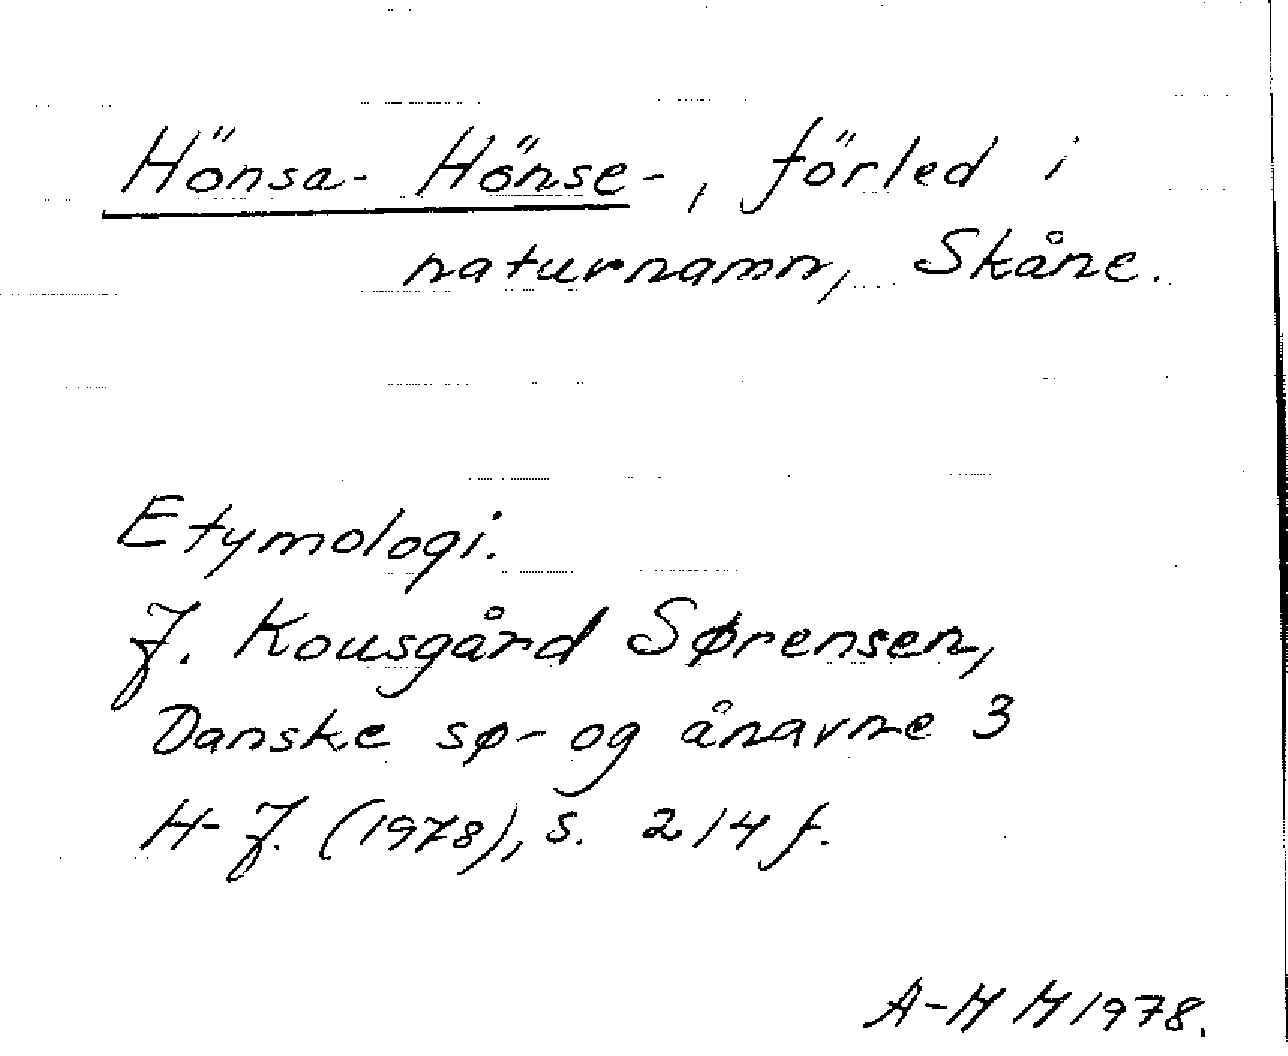 Hönsa- Hönse-, förled i
naturnamn, Skåne.
Etymologi.
J. Kousgård Sørensen,
Danske sø- og ånavne 3
H-J. (1978), s. 214 f.
A-H H 1978.